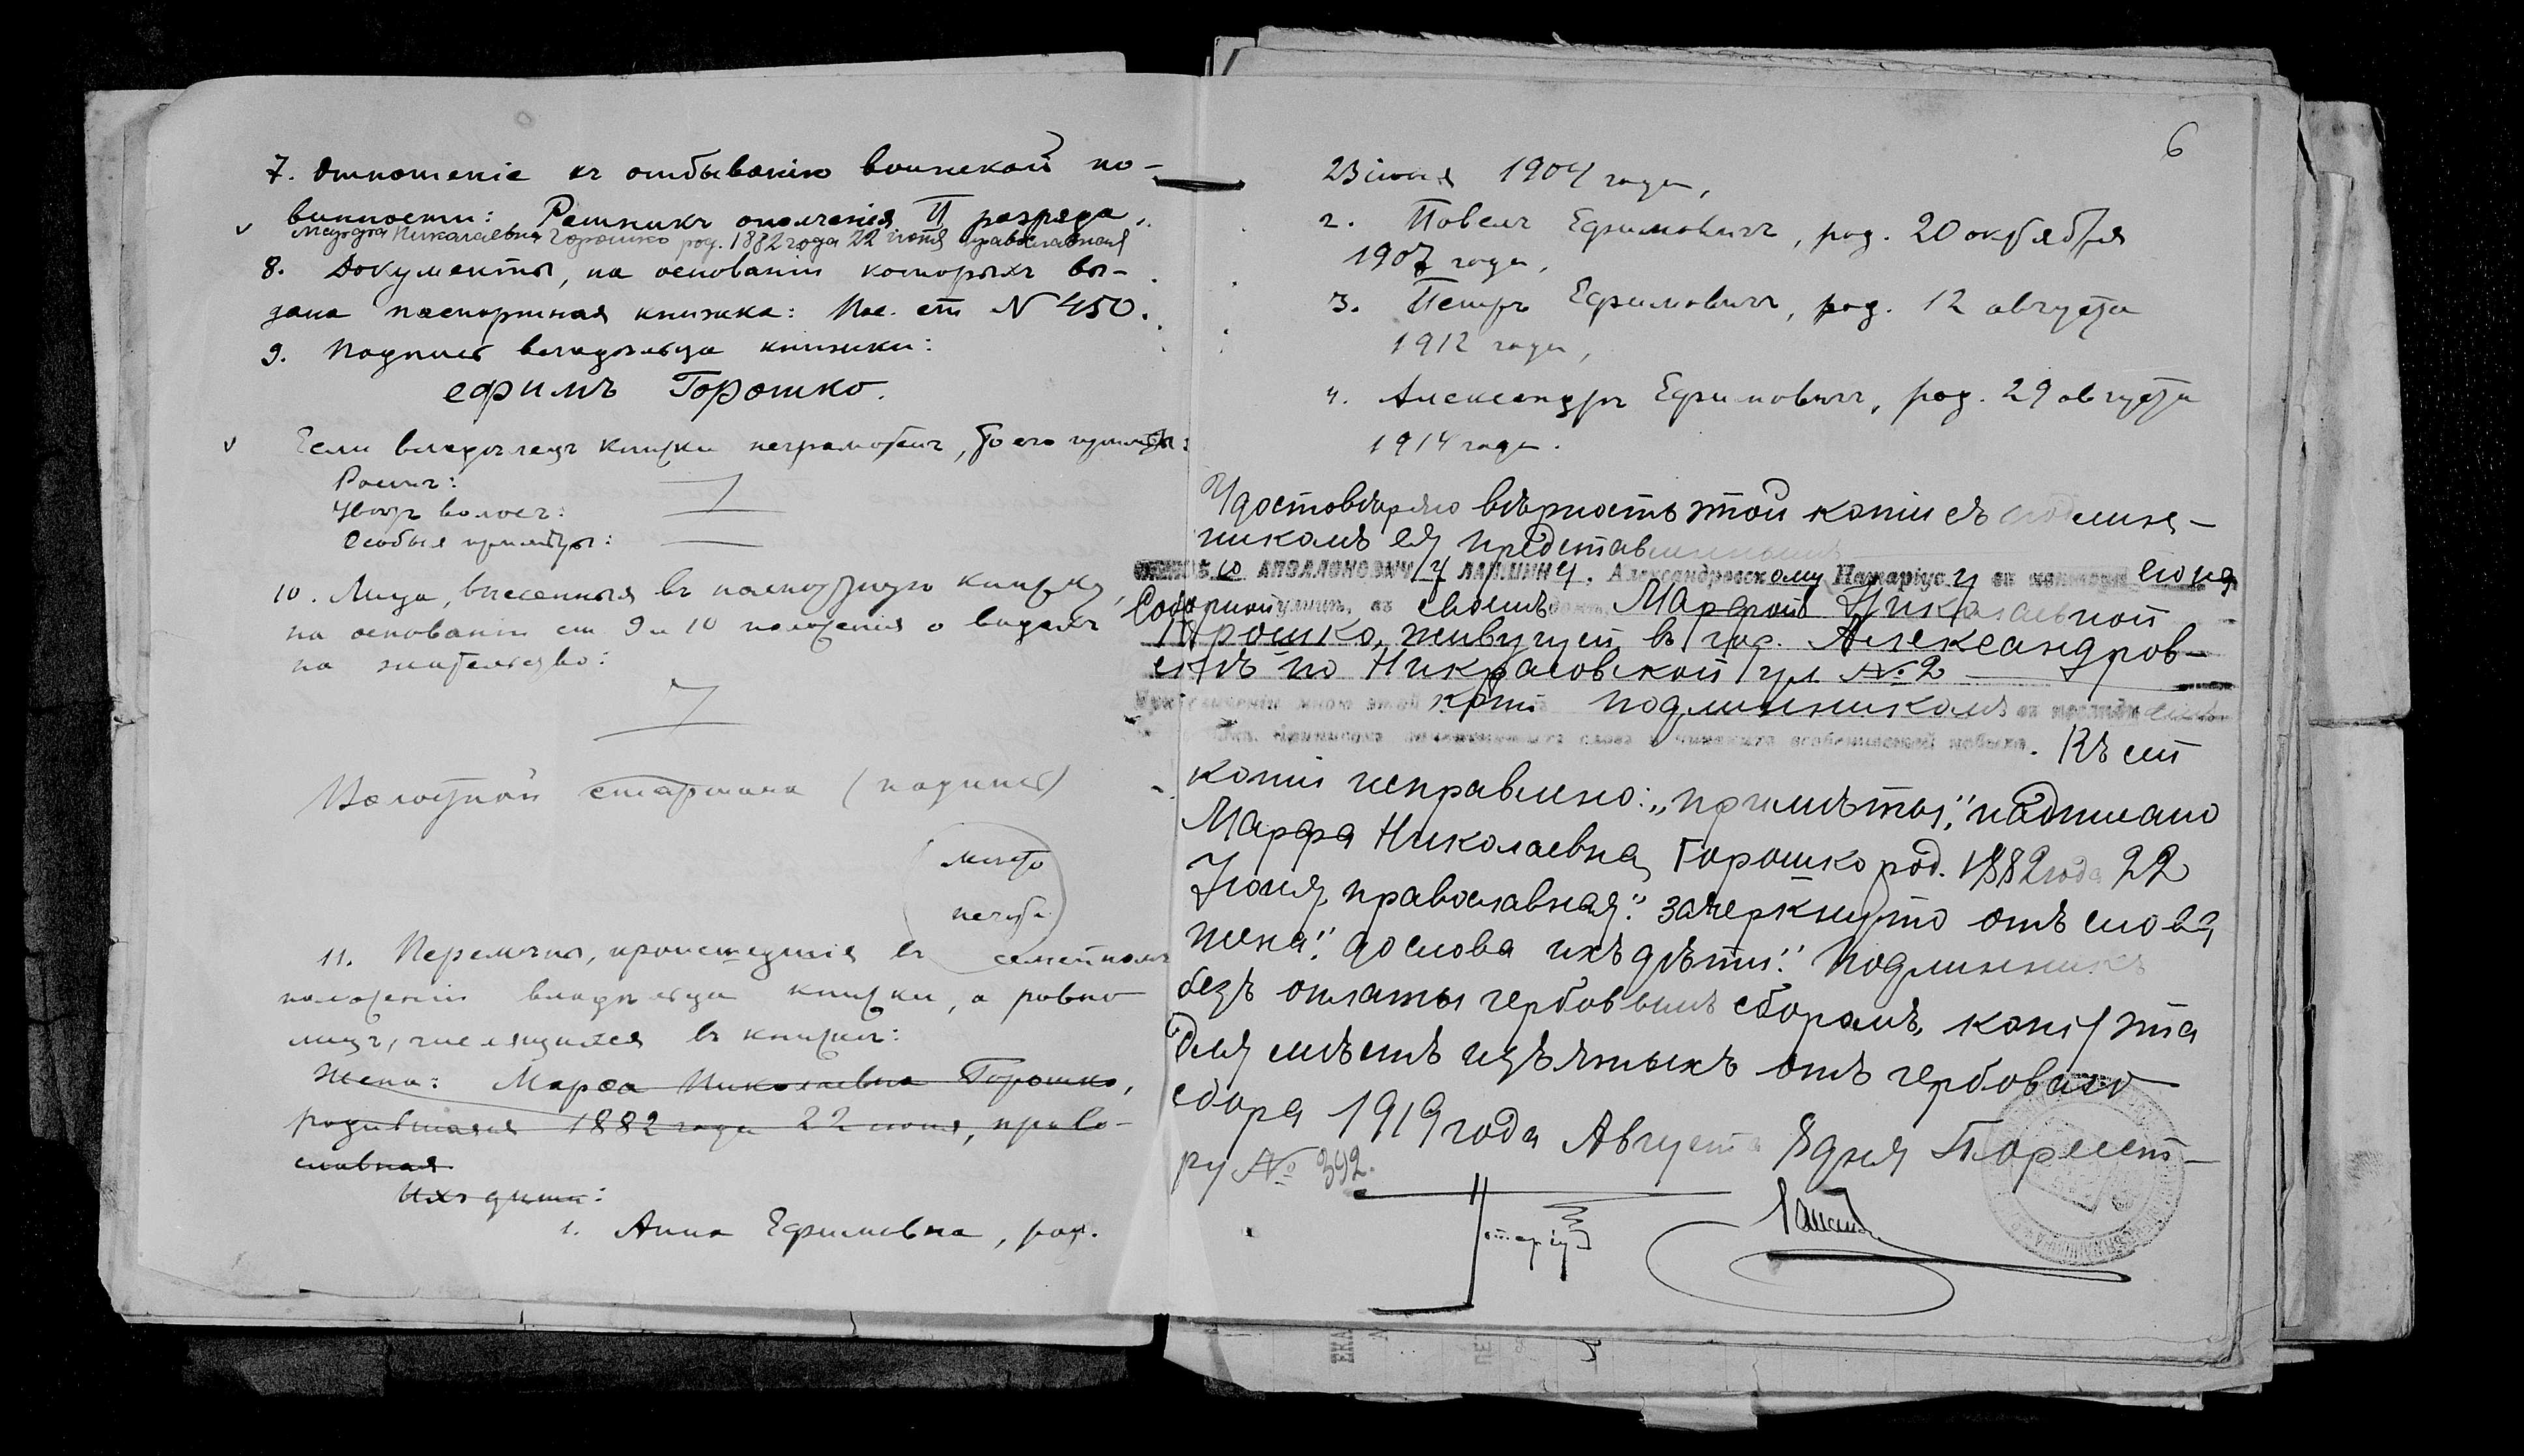 7. Отношеніе къ отбыванію воинской по-
винности: Ратникъ ополченія II разряда.
Марфа Николаевна Горошко род. 1882 года 22 іюня православная
8. Документы, на основаніи которыхъ вы-
дана паспортная книжка: Пос. сп. N 450.
9. Подпись владѣльца книжки:
ефимъ Горошко.
Если владѣлецъ книжки неграмотенъ, то его примѣты:
Ростъ:
Цвѣтъ волосъ:
Особыя примѣты:
10. Лица, внесенныя въ паспортную книжку,
на основаніи ст. 9 и 10 положенія о видахъ
на жительство:
Волостной старшина (подпись)
мѣсто
печати
11. Перемѣны, происшедшія въ семейномъ
положеніи владѣльца книжки, а равно
лицъ, числящихся въ книжкѣ:
Жена: Марѳа Николаевна Горошко,
родившаяся 1882 года 22 іюня, право-
славная
Ихъ дѣти:
1. Анна Ефимовна, род.
6
23 іюня 1904 года,
2. Павелъ Ефимовичъ, род. 20 октября
1907 года,
3. Петръ Ефимовичъ, род. 12 августа
1912 года,
4. Александръ Ефимовичъ, род. 29 августа
1914 года.
Удостовѣряю вѣрность этой копіи съ подлин-
никомъ ея, представленнымъ
АПОЛЛОНОВИЧУ ЛАПШИНУ, Александровскому Нотаріусу въ конторѣ его на
Соборной улицѣ, въ своемъ домѣ, Марфой Николаевной
Горошко, живущей въ гор. Александров-
скѣ по Никрасовской ул. № 2
копіи подлинникомъ
. Въ сей
копіи исправлено: „примѣты", надписано
Марфа Николаевна Горошко род. 1882 года 22
Іюня, православная". зачеркнуто отъ слова
жена" до слова ихъ дѣти". Подлинникъ
безъ оплаты гербовымъ сборомъ, копія эта
для мѣстъ изъятыхъ отъ гербоваго
сбора 1919 года Августа 8 дня По реест-
ру № 392.
Нотаріусъ